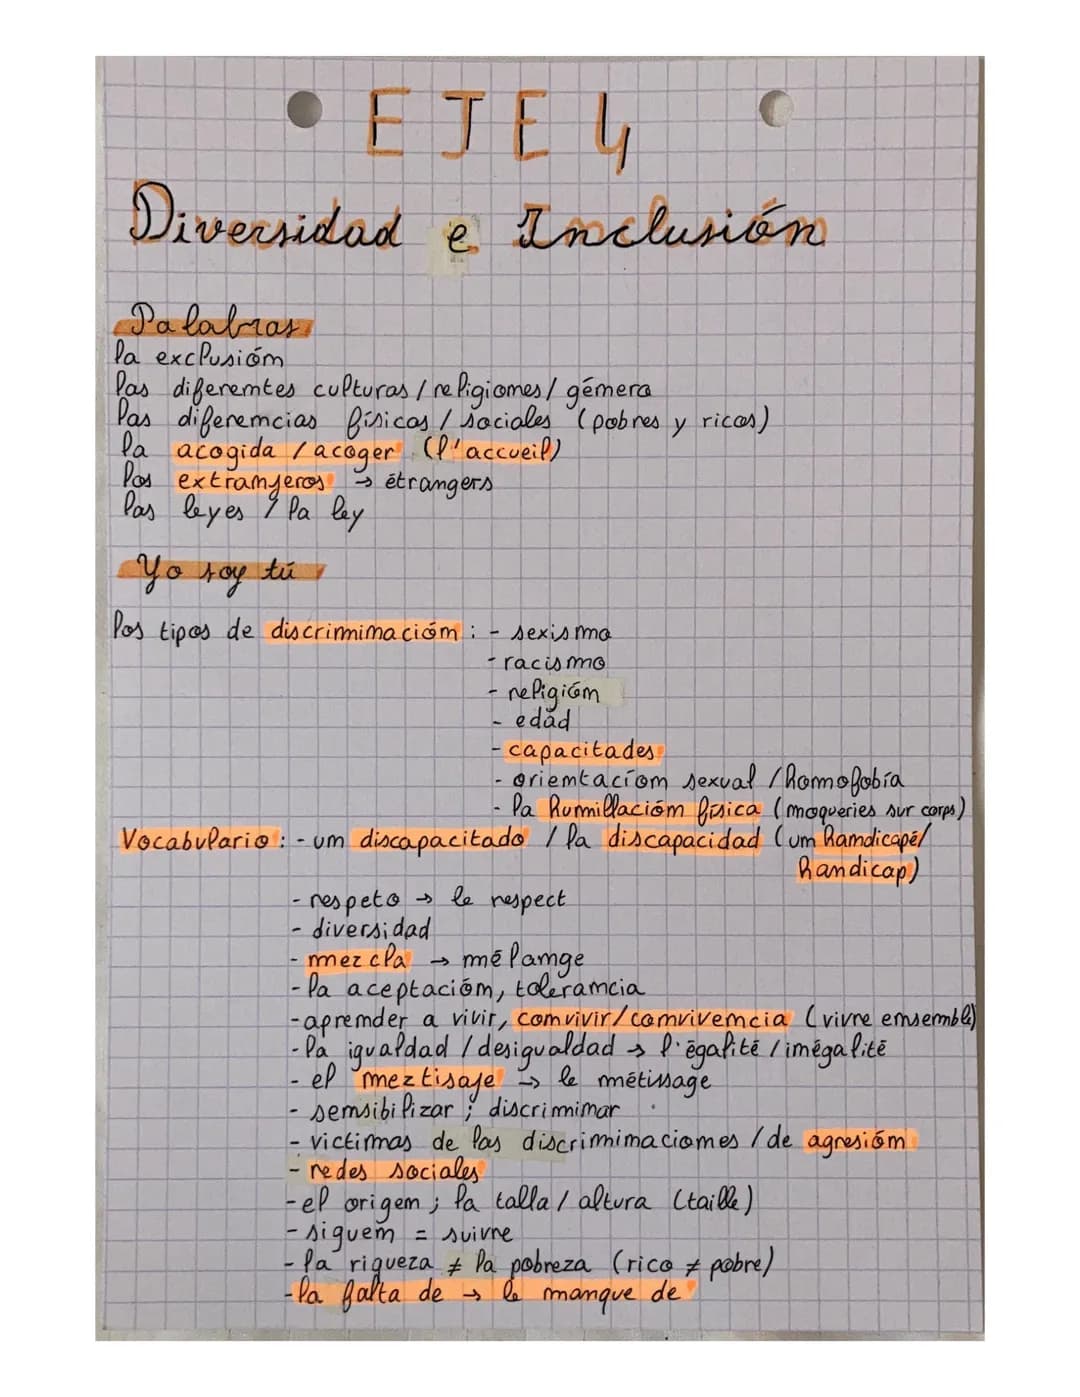 EJE 4
Diversidad e Inclusión
Palabras
la exclusión
las diferentes culturas / religiones / género
las diferencias físicas / sociales (pobres y ricos)
la acogida / acoger (l'accueil)
los extranjeros → étrangers
las leyes / la ley
Yo soy tú
los tipos de discriminación : - sexismo
- racismo
- religión
- edad
- capacitades
- orientacion sexual / homofobía
- la humillación física (moqueries sur corps)
Vocabulario : - un discapacitado / la discapacidad (un handicapé/
handicap)
- respeto → le respect
- diversidad
- mezcla → mélange
- la aceptación, tolerancia
- aprender a vivir, convivir/convivencia (vivre ensemble)
- la igualdad / desigualdad → l'égalité / inégalité
- el meztisaje → le métissage
- sensibilizar ; discriminar
- victimas de las discriminaciones / de agresión
- redes sociales
- el origen ; la talla / altura (taille)
- siguen = suivre
- la riqueza ≠ la pobreza (rico ≠ pobre)
- la falta de → le manque de